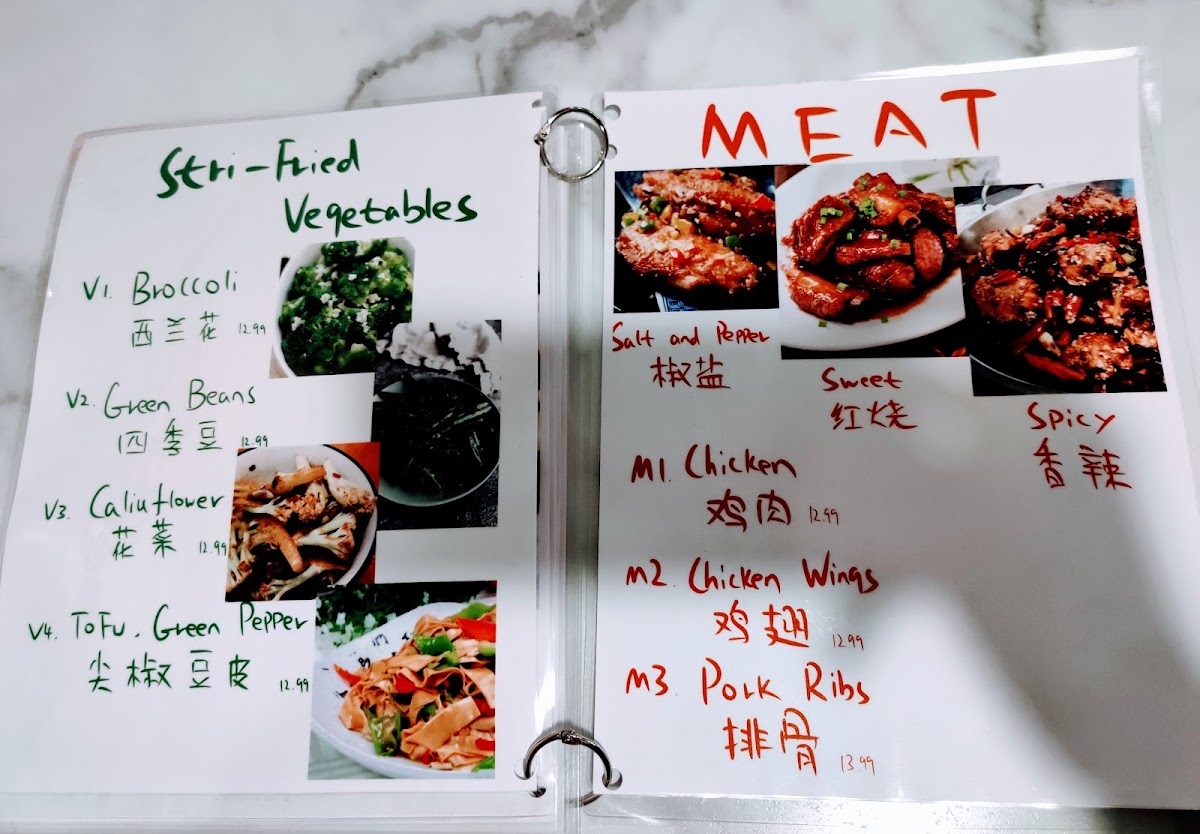 Stri-Fried
Vegetables
V1. Broccoli
西兰花 12.99
V2. Green Beans
四季豆 12.99
V3. Caliuflower
花菜 12.99
V4. ToFu. Green Pepper
尖椒豆皮 12.99
MEAT
Salt and Pepper
椒盐
Sweet
红烧
Spicy
香辣
M1. Chicken
鸡肉 12.99
M2. Chicken Wings
鸡翅 12.99
M3. Pork Ribs
排骨 13.99